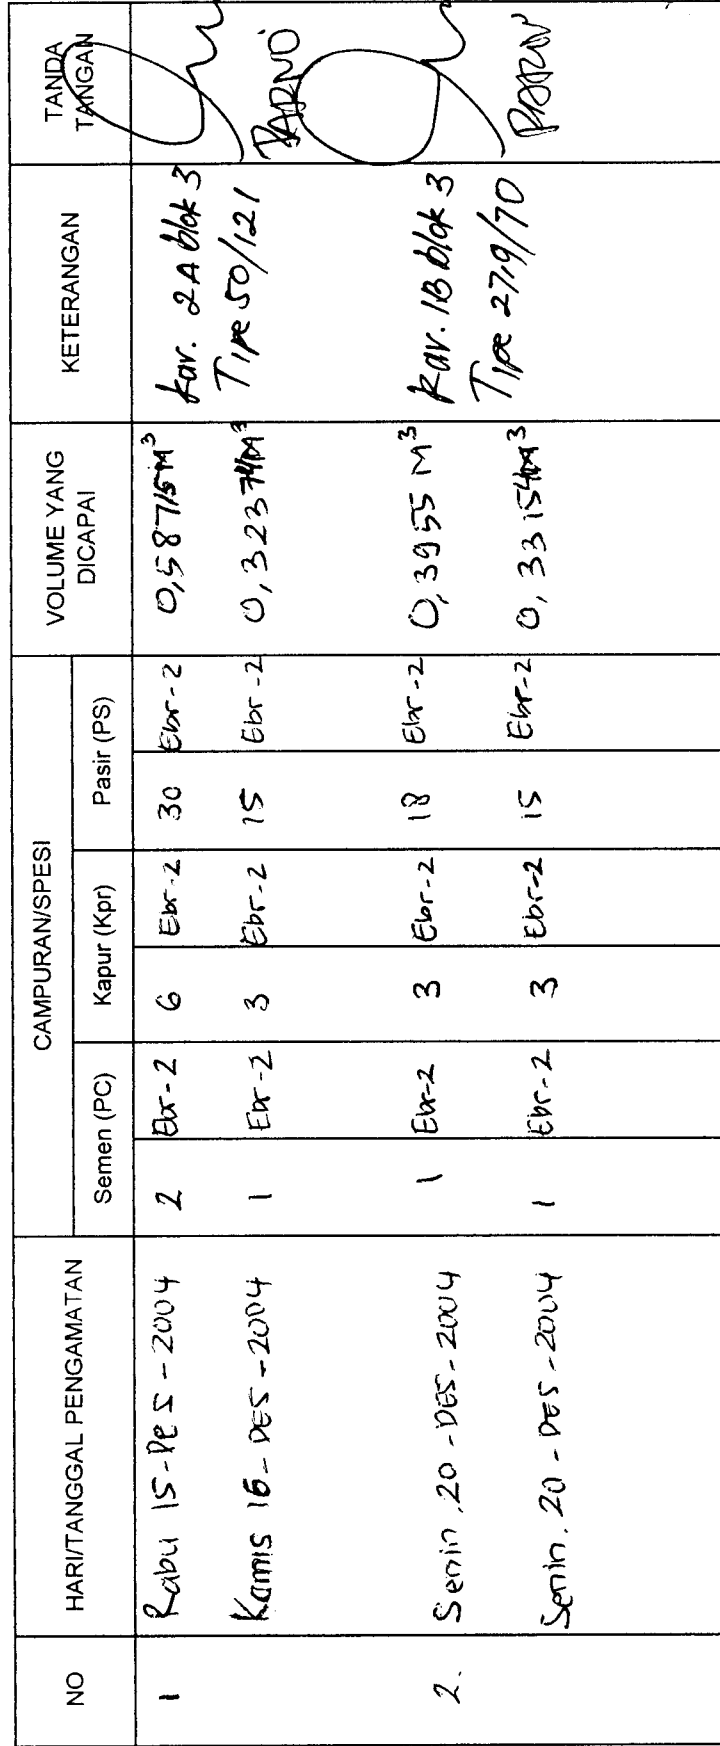 NO HARI/TANGGAL PENGAMATAN CAMPURAN/SPESI VOLUME YANG DICAPAI KETERANGAN TANDA TANGAN
Semen (PC) Kapur (Kpr) Pasir (PS)
1 Rabu 15-Des-2004 2 Ebr-2 6 Ebr-2 30 Ebr-2 0,58715 M³ Kav. 2A blok 3
Kamis 16-DES-2004 1 Ebr-2 3 Ebr-2 15 Ebr-2 0,32374 M³ Tipe 50/121 PARNO
2. Senin, 20-DES-2004 1 Ebr-2 3 Ebr-2 18 Ebr-2 0,3955 M³ Kav. 1B blok 3
Senin, 20-DES-2004 1 Ebr-2 3 Ebr-2 15 Ebr-2 0,33154 M³ Tipe 27,9/70